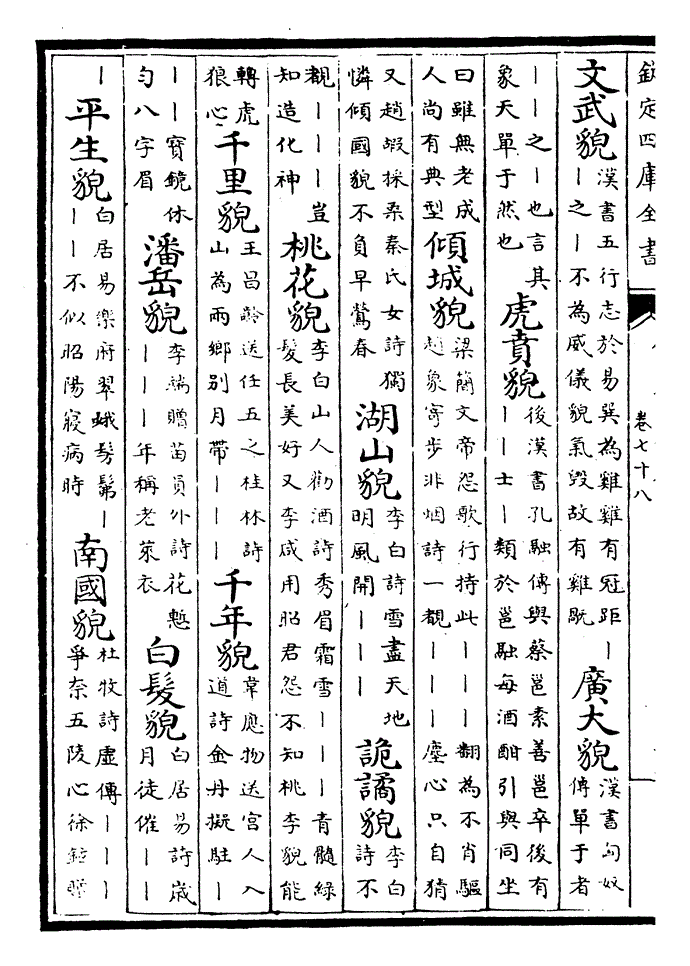 欽定四庫全書
卷七十八
文武貌漢書五行志於易巽為雞雞有冠距丨丨之丨不為威儀貌氣毀故有雞旤廣大貌漢書匈奴傳單于者
丨丨之丨也言其象天單于然也虎賁貌後漢書孔融傳與蔡邕素善邕卒後有丨丨士丨類於邕融每酒酣引與同坐
曰雖無老成人尚有典型傾城貌梁簡文帝怨歌行持此丨丨丨翻為不肖驅趙象寄步非烟詩一覩丨丨丨塵心只自猜
又趙嘏採桑秦氏女詩獨憐傾國貌不負早鶯春湖山貌李白詩雪盡天地明風開丨丨丨詭譎貌李白詩不
覩丨丨丨豈知造化神桃花貌李白山人勸酒詩秀眉霜雪丨丨丨青髓綠髮長美好又李咸用昭君怨不知桃李貌能
轉虎狼心千里貌王昌齡送任五之桂林詩山為兩鄉別月帶丨丨丨千年貌韋應物送宮人入道詩金丹擬駐丨
丨丨寶鏡休勻八字眉潘岳貌李端贈苗員外詩花慙丨丨丨年稱老萊衣白髮貌白居易詩歲月徒催丨丨
丨平生貌白居易樂府翠蛾髣髴丨丨丨不似昭陽寢病時南國貌杜牧詩虛傳丨丨丨爭奈五陵心徐鉉贈